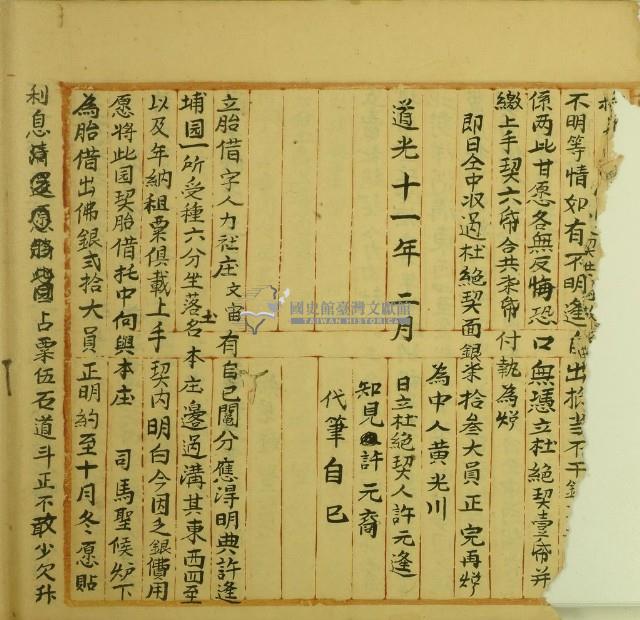 不明等情如有不明逢出抵當不干銀
係两比甘愿各無反悔恐口無憑立杜絶契壹帋并
繳上手契六帋合共柒帋付執為炤
即日仝中収過杜絶契面銀柒拾叁大員正完再炤
為中人黄光川
日立杜絶契人許元逢
道光十一年二月
知見許元裔
代筆自己
立胎借字人力社庄文宙有自己鬮分應得明典許逢
埔园一所受種六分坐落土名本庄邊過溝其東西四至
以及年納租粟俱載上手契内明白今因乏銀費用
愿將此园契胎借托中向與本庄司馬聖候炉下
為胎借出佛銀弍拾大員正明約至十月冬愿貼
利息清還愿將此园占粟伍石道斗正不敢少欠升
國史館臺灣文獻館
TAIWAN HISTORICA